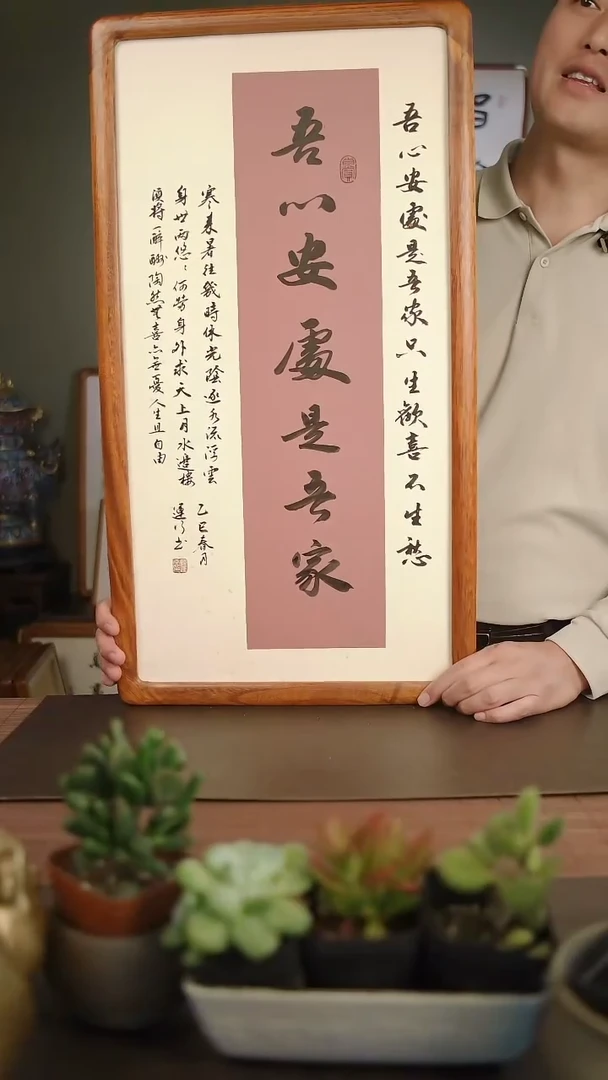 吾心安處是吾家只生歡喜不生愁
吾心安處是吾家
寒來暑往幾時休光陰逐水流浮雲
身世兩悠悠何勞身外求天上月水邊樓
須將一醉酬陶然無喜亦無憂人生且自由
乙巳春月